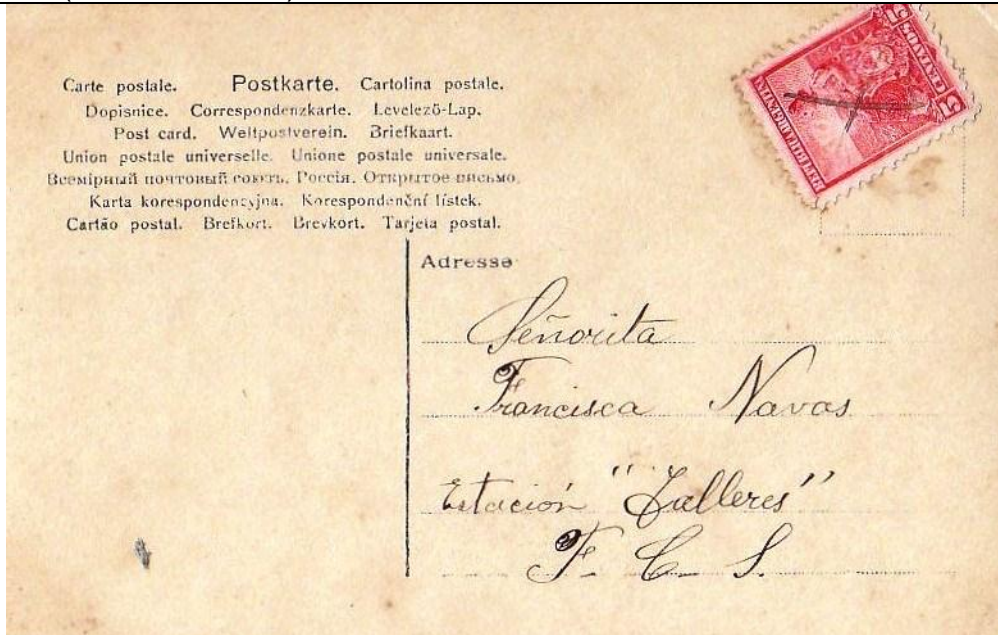 Carte postale. Postkarte. Cartolina postale.
Dopisnice. Correspondenzkarte. Levelező-Lap.
Post card. Weltpostverein. Briefkaart.
Union postale universelle. Unione postale universale.
Всемірный почтовый союзъ. Россія. Открытое письмо.
Karta korespondencyjna. Korespondenční lístek.
Cartão postal. Brefkort. Brevkort. Tarjeta postal.
5 CENTAVOS 5
REPUBLICA ARGENTINA
Adresse
Señorita
Francisca Navas
Estación "Talleres"
F. C. S.